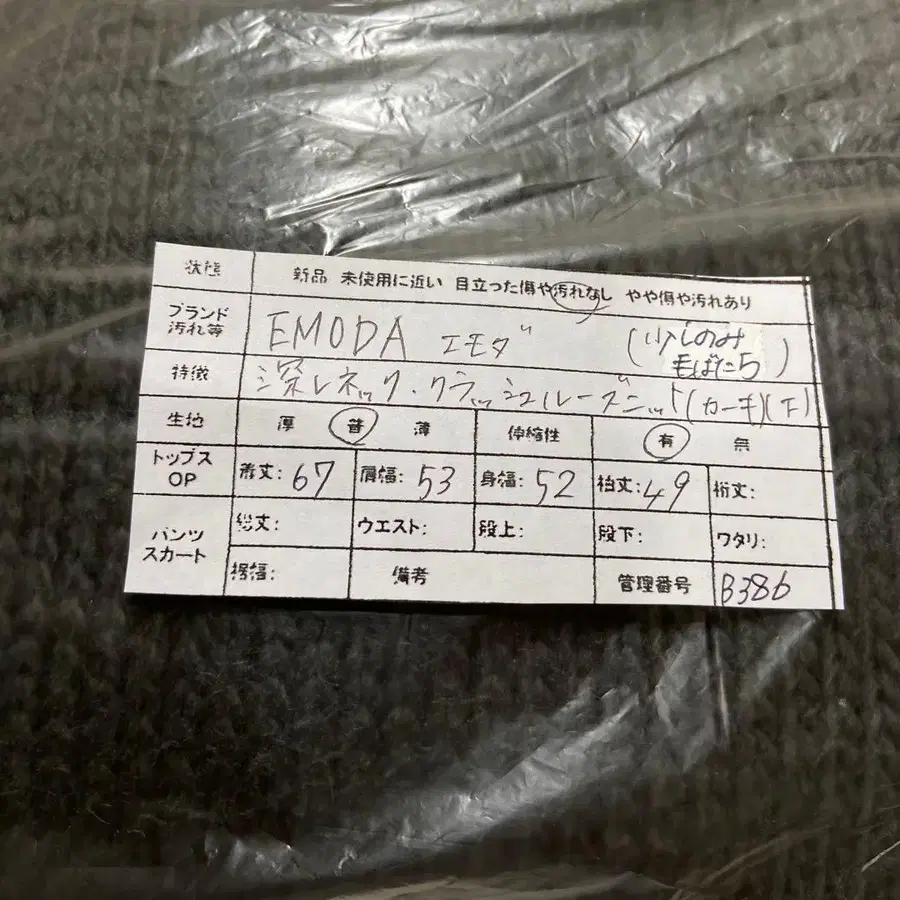 状態 新品 未使用に近い 目立った傷や汚れなし やや傷や汚れあり
ブランド 汚れ等 EMODA エモダ (少しのみ 毛ばだち)
特徴 深Vネック・クラッシュルーズニット(カーキ)(F)
生地 厚 普 薄 伸縮性 有 無
トップス OP 着丈: 67 肩幅: 53 身幅: 52 袖丈: 49 裄丈:
パンツ スカート 総丈: ウエスト: 股上: 股下: ワタリ:
裾幅: 備考 管理番号 B386